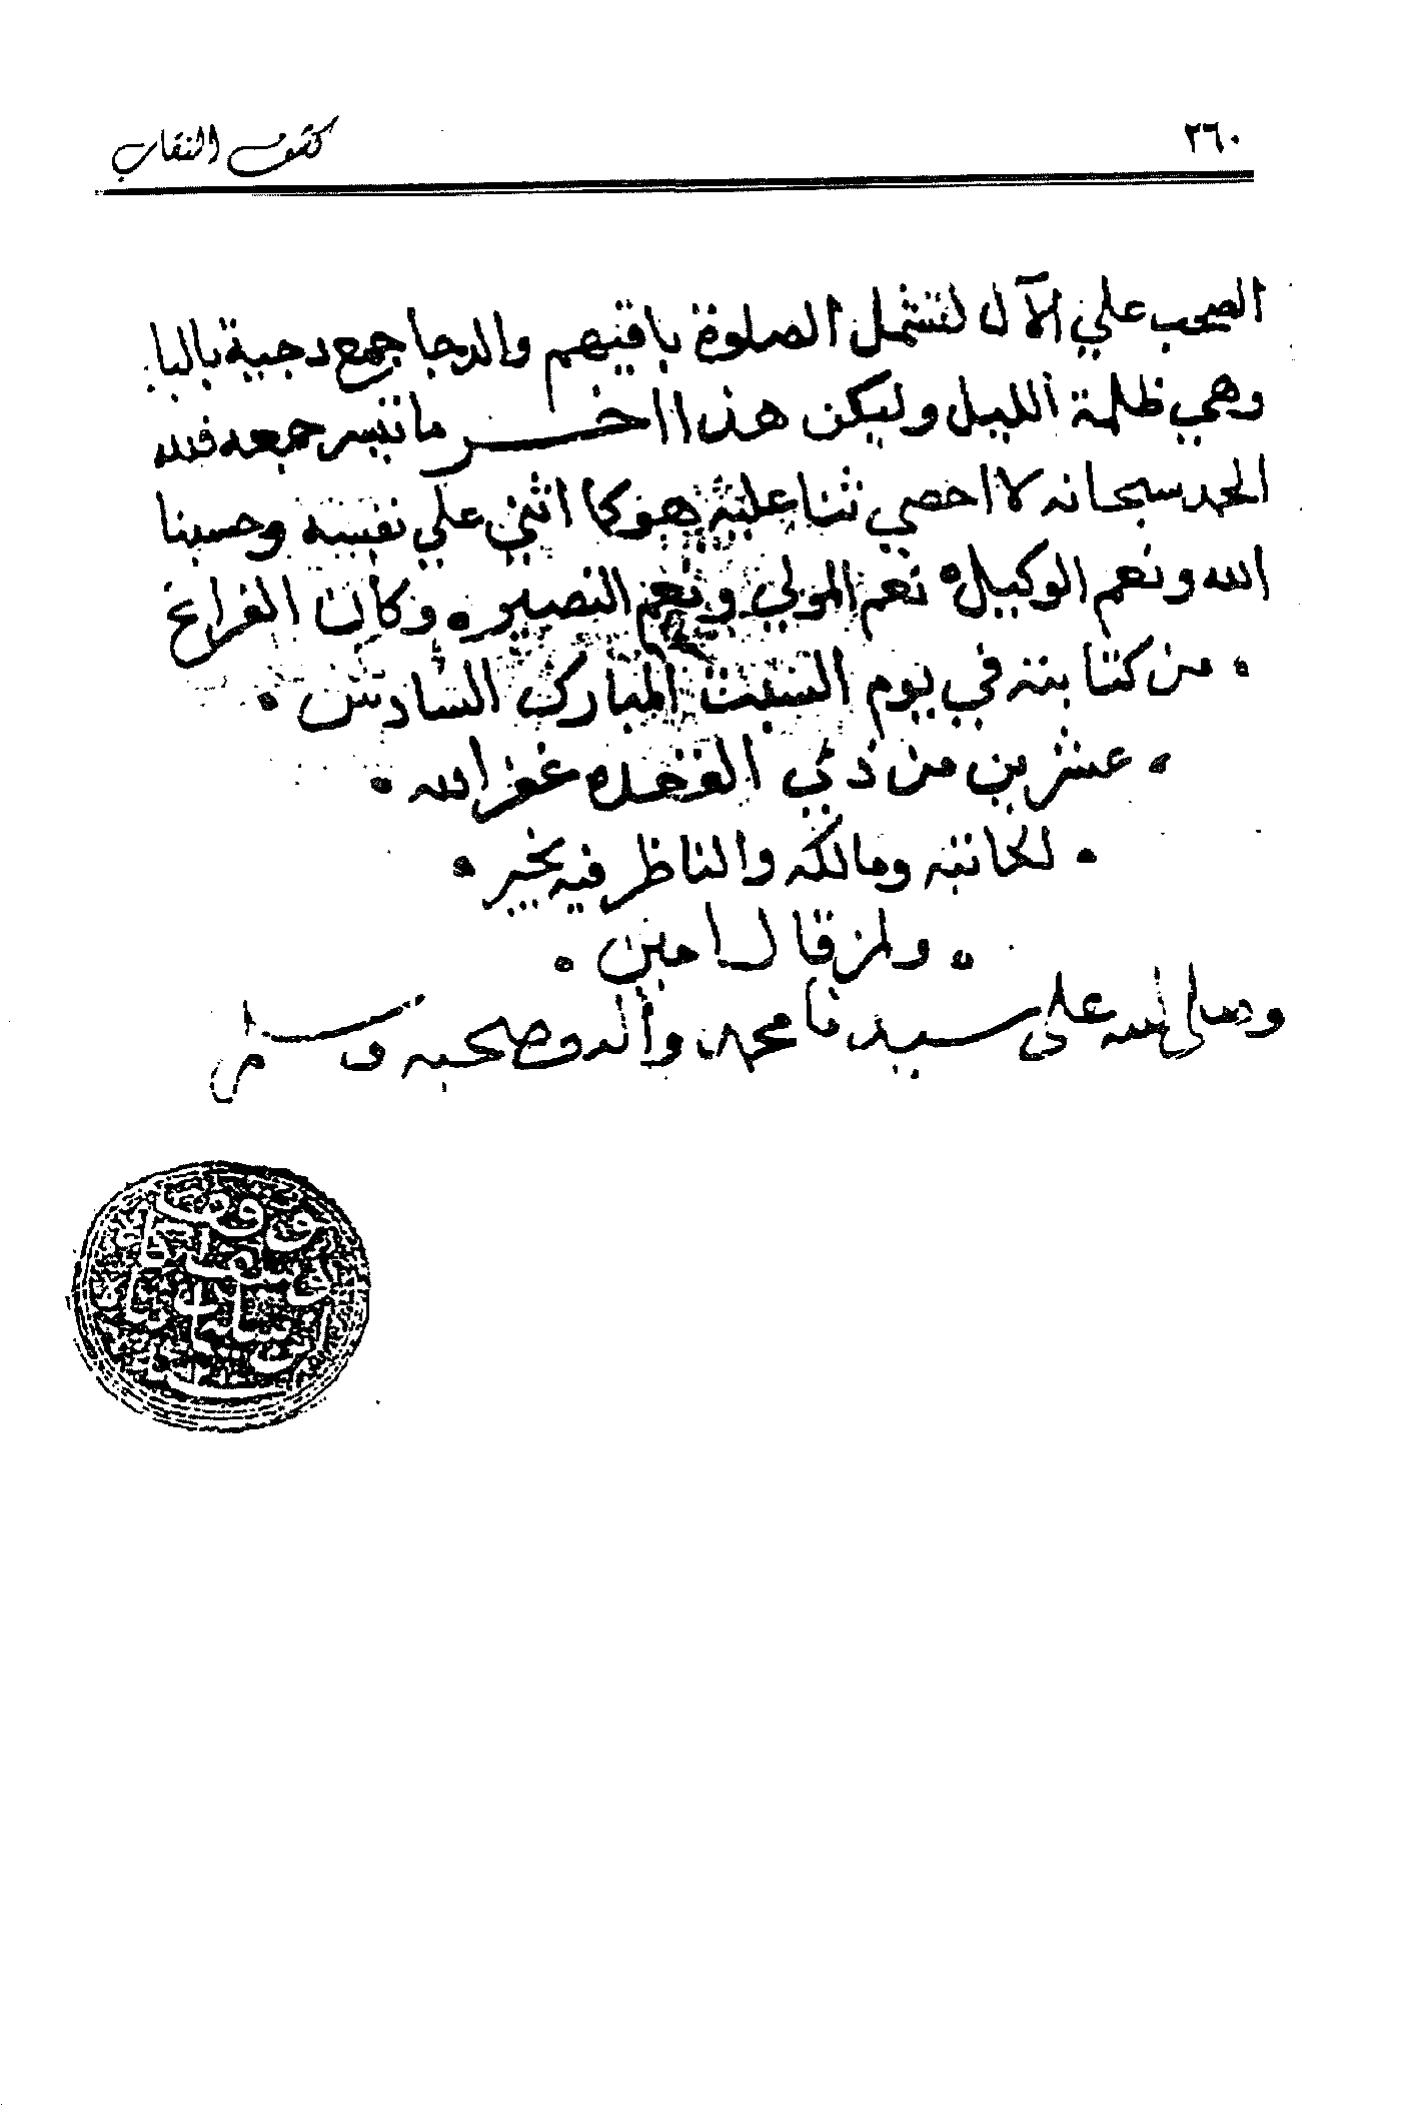 ٢٦٠
كشف النقاب
الصحب علي الآل لتشمل الصلوة باقيهم والدجا جمع دجية باليا
وهي ظلمة الليل وليكن هذا اخر ما تيسر جمعه فلله
الحمد سبحانه لا احصي ثنا عليه هو كما اثني علي نفسه وحسبنا
الله ونعم الوكيل نعم المولي ونعم النصير وكان الفراغ
من كتابته في يوم السبت المبارك السادس
عشرين من ذي القعده غفر الله
لكاتبه ومالكه والناظر فيه بخير
ولمن قال امين
وصلى الله على سيدنا محمد وآله وصحبه وسلم